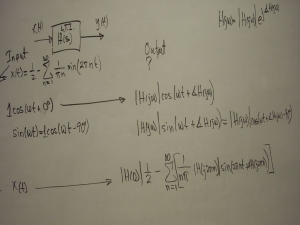 x(t) LTI H(s) y(t)
H(jω)= |H(jω)| e^{j∠H(jω)}
Input Output
x(t) = 1/2 - Σ_{n=1}^{∞} 1/(πn) sin(2πnt) ?
1cos(ωt+0°) → |H(jω)| cos(ωt+∠H(jω))
sin(ωt)=1cos(ωt-90°) |H(jω)| sin(ωt+∠H(jω)) = |H(jω)| cos(ωt+∠H(jω)-90°)
x(t) → |H(0)| 1/2 - Σ_{n=1}^{∞} [1/(nπ) |H(j2πn)| sin(2πnt+∠H(j2πn))]